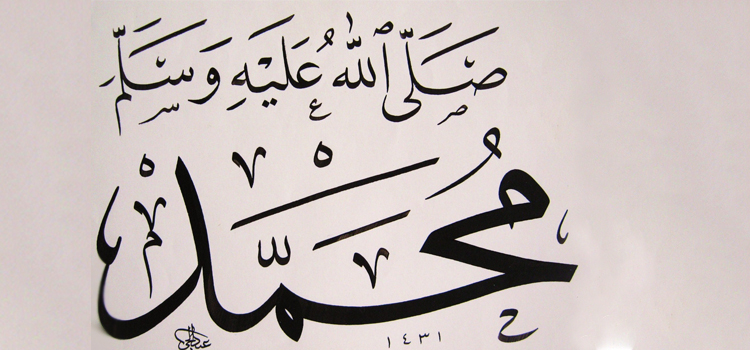 صَلَّى ٱللّٰهُ عَلَيْهِ وَسَلَّمَ
مُحَمَّدْ
١٤٣١